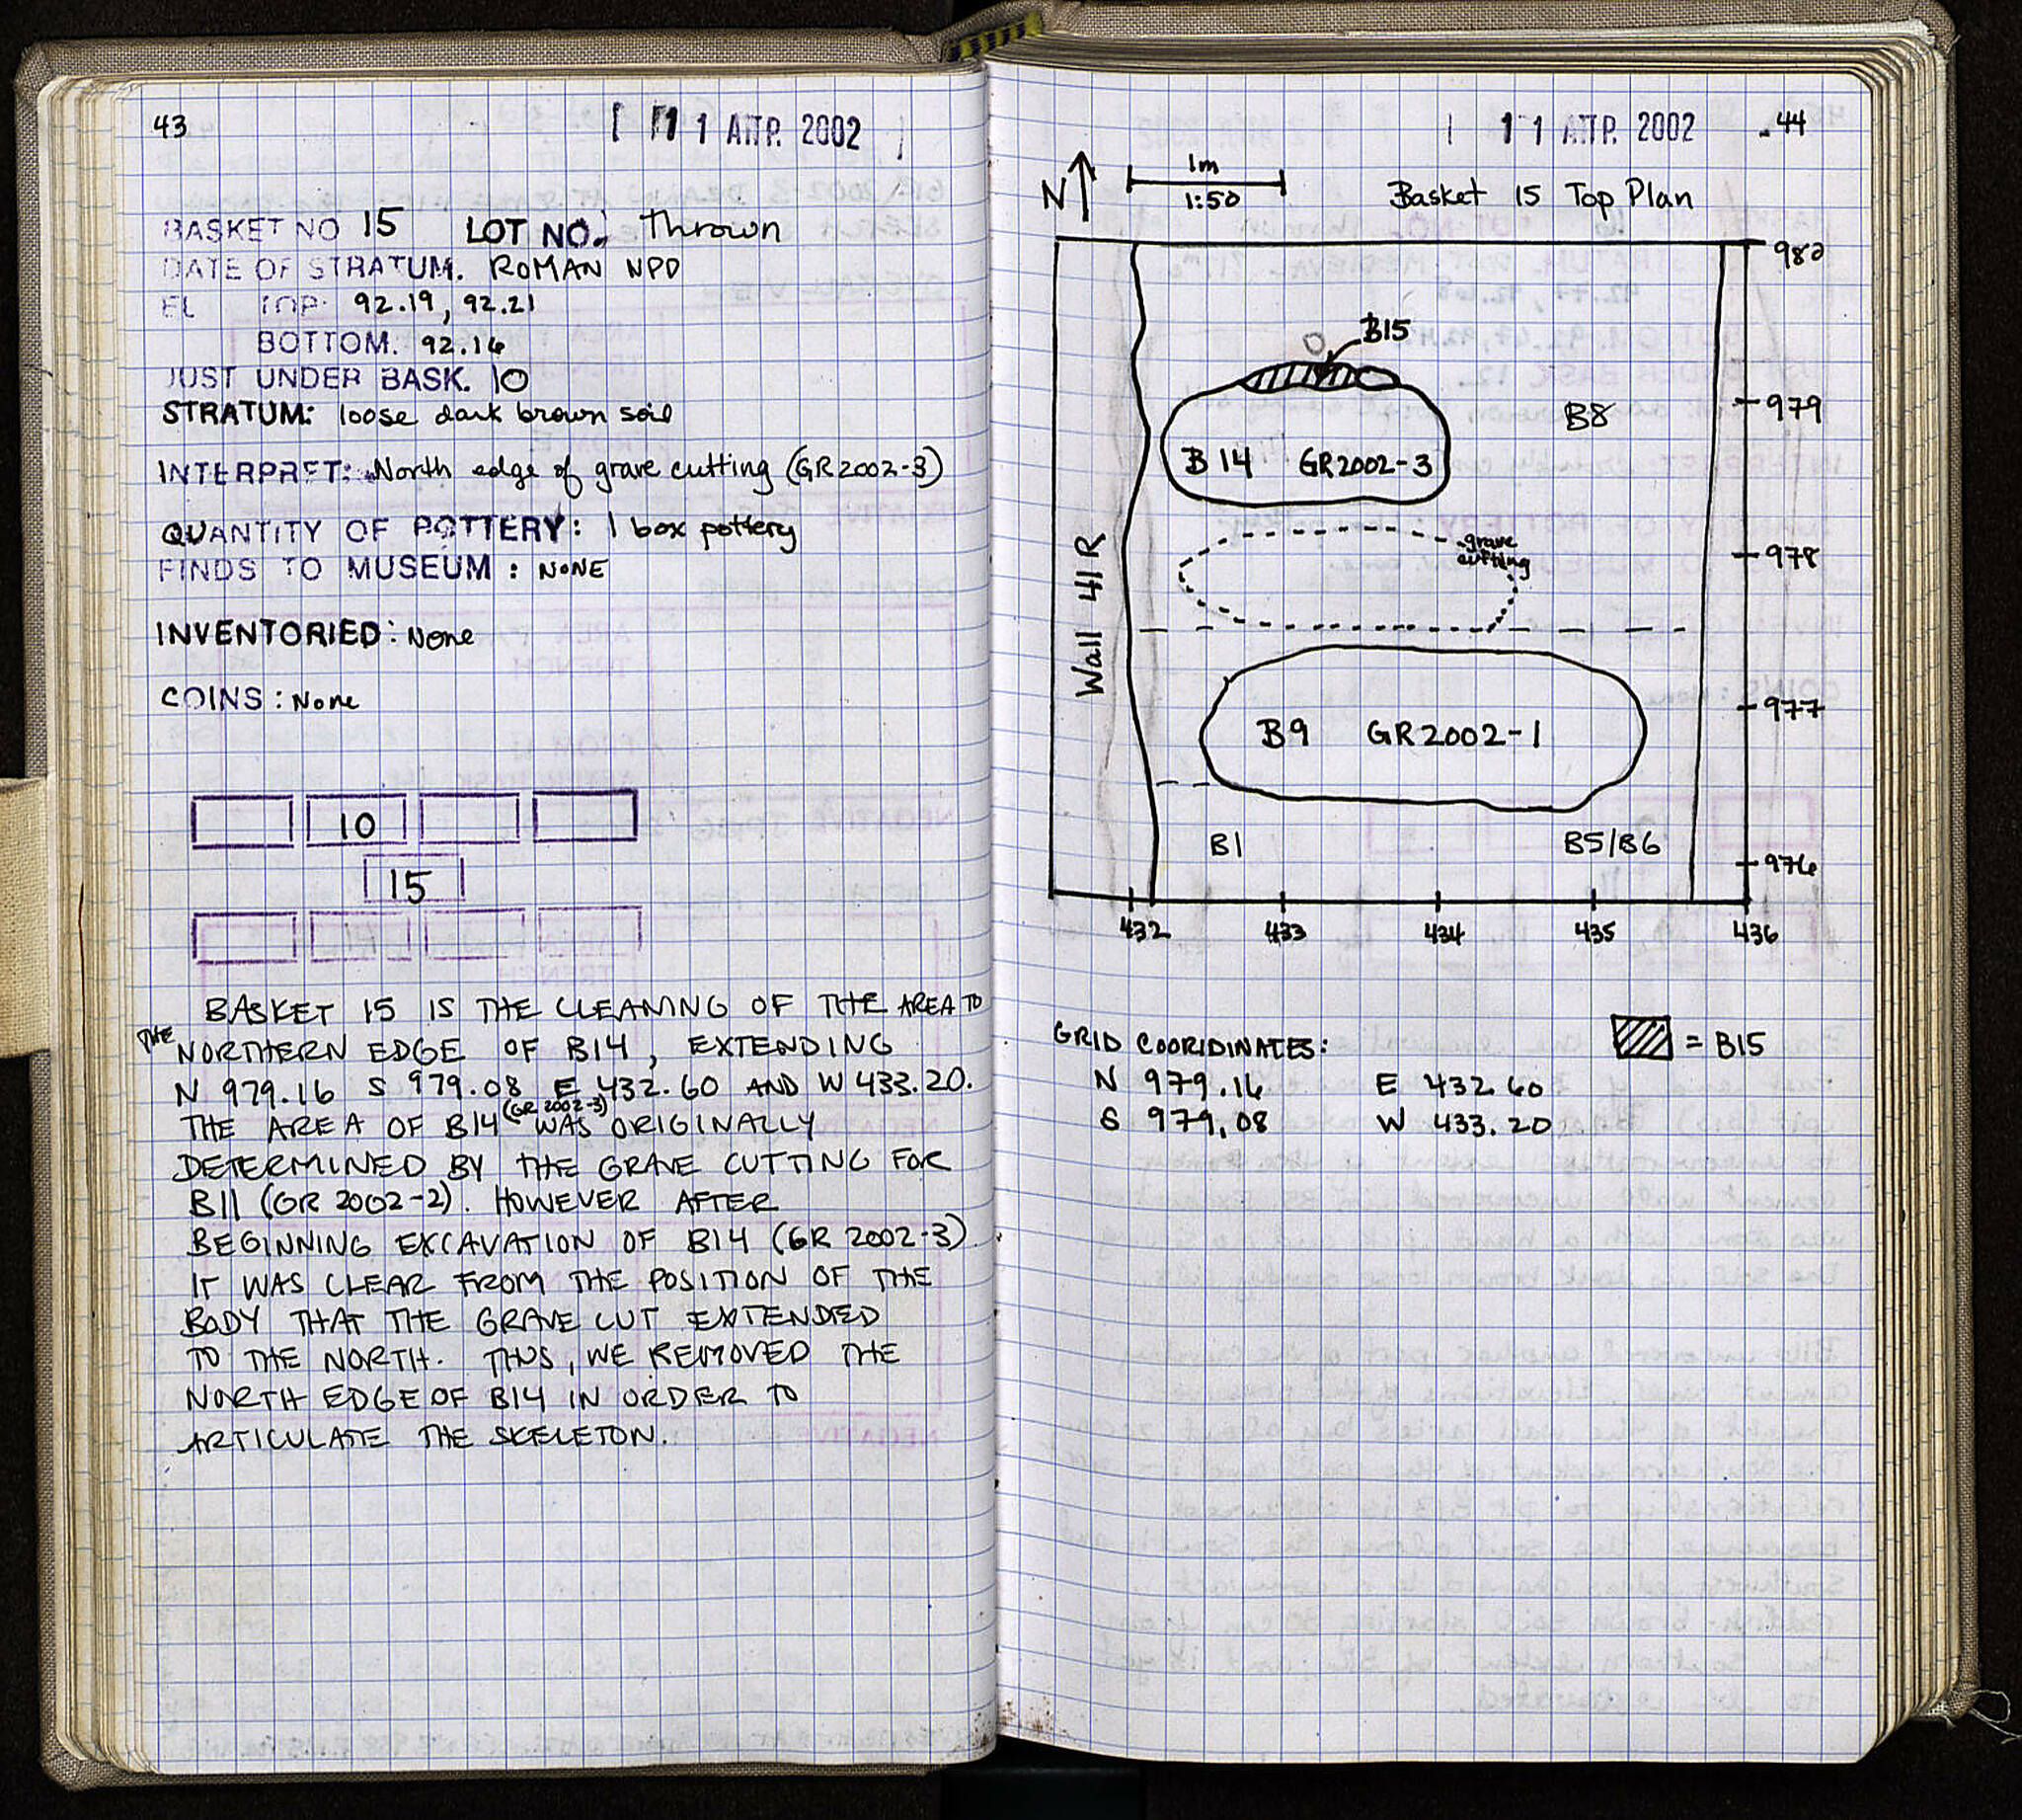 43
11 ΑΠΡ. 2002
BASKET NO 15 LOT NO. Thrown
DATE OF STRATUM. ROMAN NPD
EL TOP: 92.19, 92.21
BOTTOM. 92.16
JUST UNDER BASK. 10
STRATUM: loose dark brown soil
INTERPRET: North edge of grave cutting (GR2002-3)
QUANTITY OF POTTERY: 1 box pottery
FINDS TO MUSEUM: NONE
INVENTORIED: None
COINS: None
10
15
BASKET 15 IS THE CLEANING OF THE AREA TO
THE NORTHERN EDGE OF B14, EXTENDING
N 979.16 S 979.08 E 432.60 AND W 433.20.
THE AREA OF B14 (GR 2002-3) WAS ORIGINALLY
DETERMINED BY THE GRAVE CUTTING FOR
B11 (GR 2002-2). HOWEVER AFTER
BEGINNING EXCAVATION OF B14 (GR 2002-3)
IT WAS CLEAR FROM THE POSITION OF THE
BODY THAT THE GRAVE CUT EXTENDED
TO THE NORTH. THUS, WE REMOVED THE
NORTH EDGE OF B14 IN ORDER TO
ARTICULATE THE SKELETON.
11 ΑΠΡ. 2002
44
N
1m
1:50
Basket 15 Top Plan
980
B15
979
B8
B14 GR2002-3
grave
cutting
978
Wall 41R
977
B9 GR2002-1
B1
B5/B6
976
432 433 434 435 436
GRID COORIDINATES:
= B15
N 979.16 E 432.60
S 979.08 W 433.20